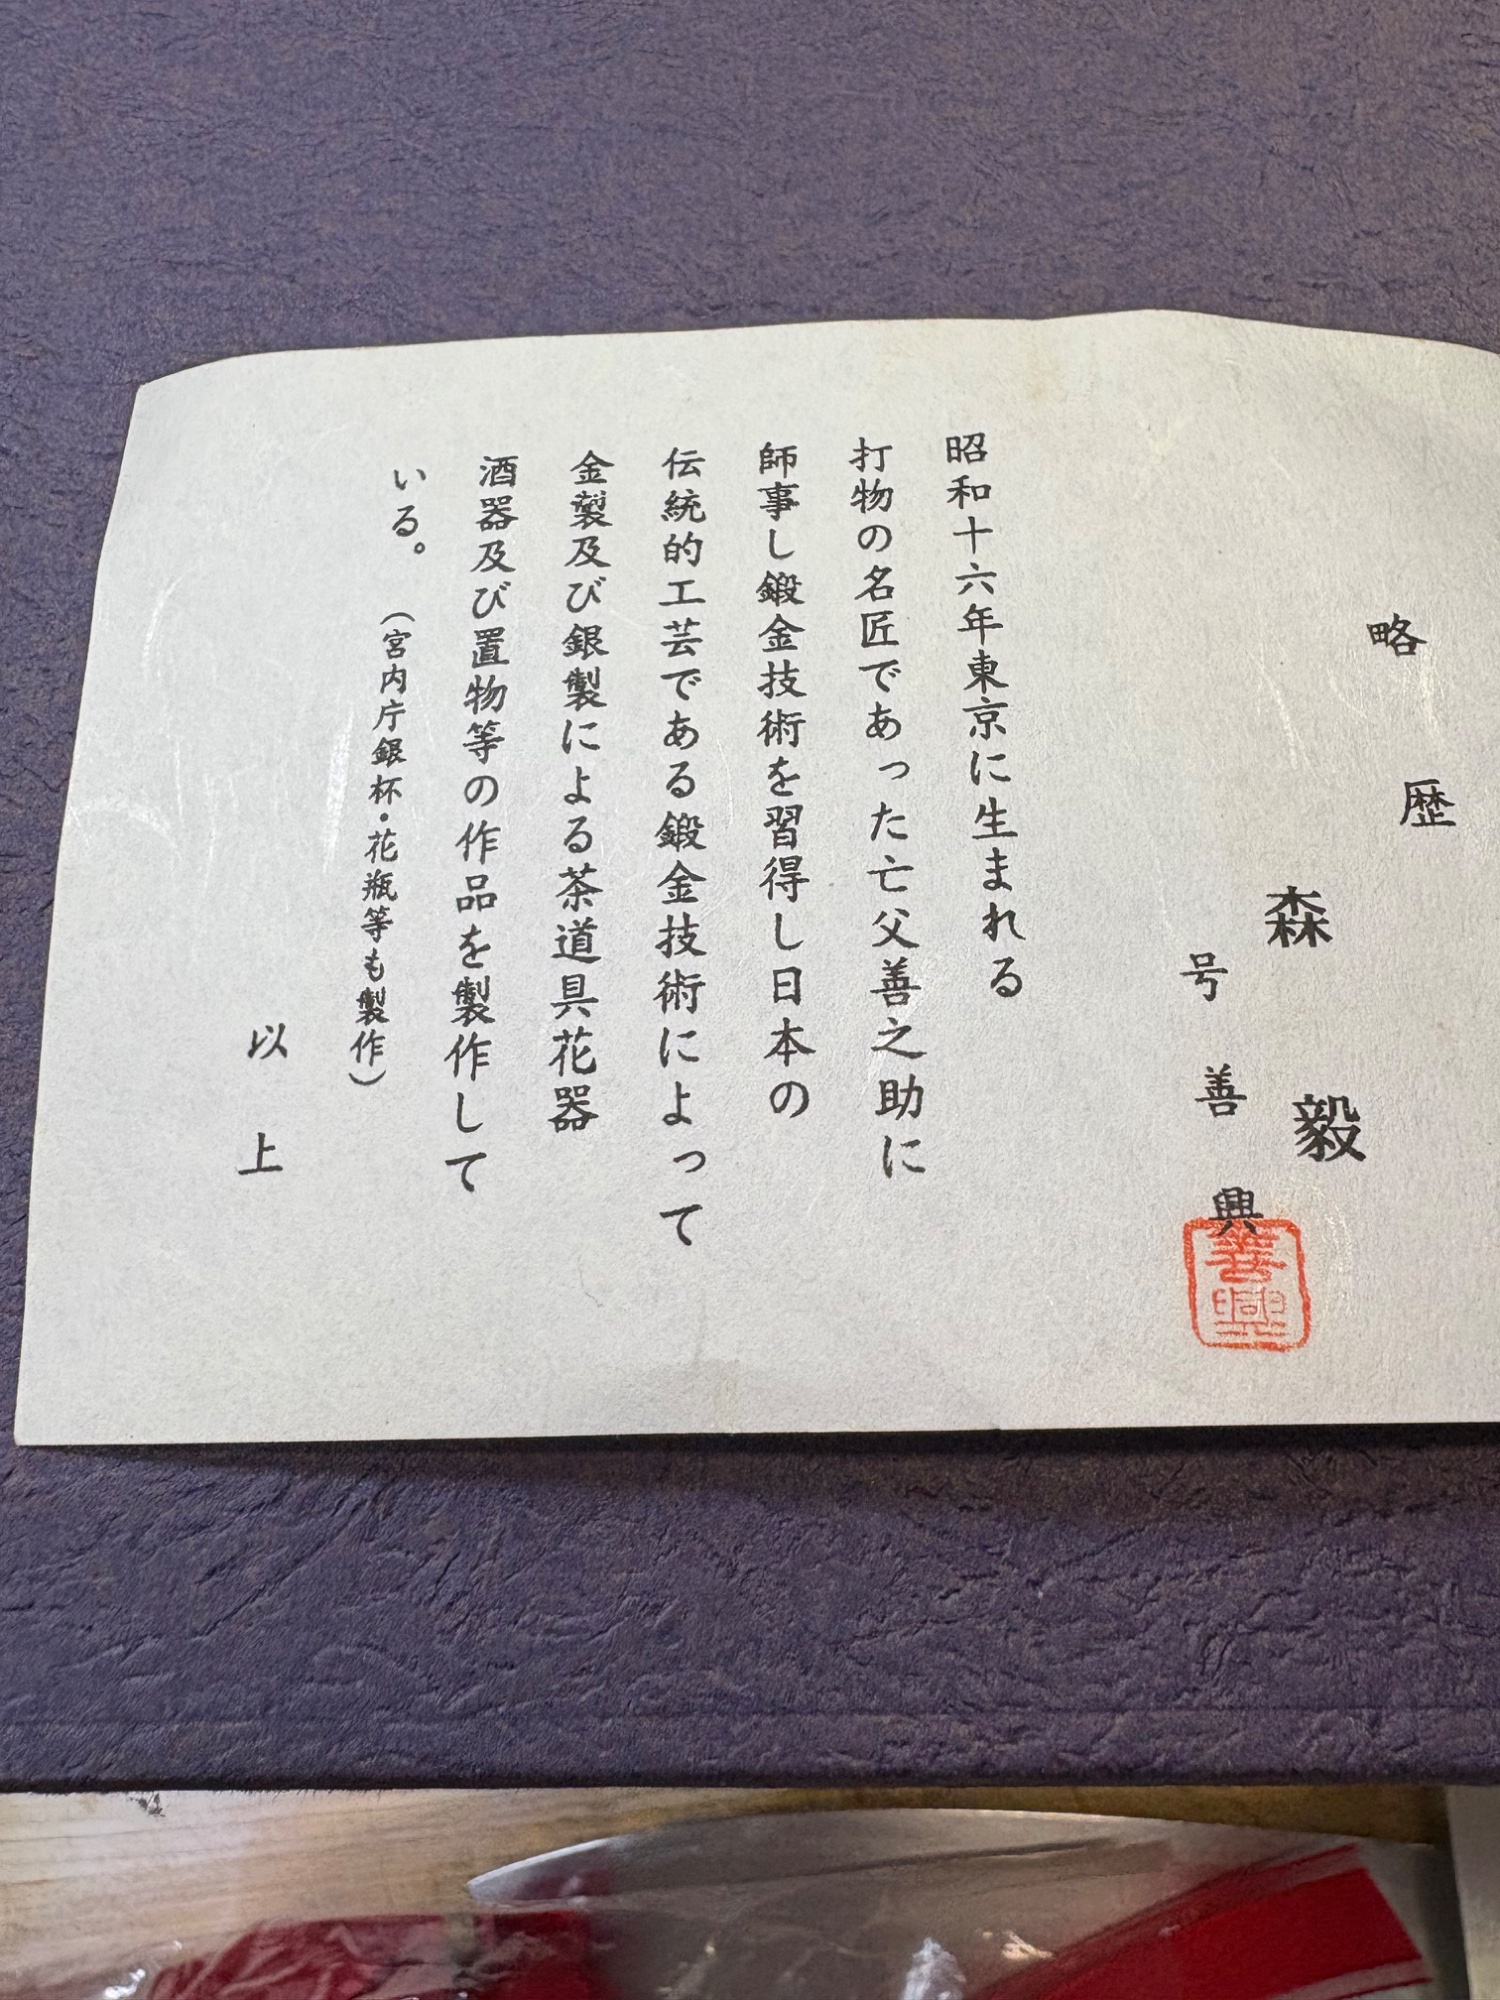 略歴
森毅
号善興
善興
昭和十六年東京に生まれる
打物の名匠であった亡父善之助に
師事し鍛金技術を習得し日本の
伝統的工芸である鍛金技術によって
金製及び銀製による茶道具花器
酒器及び置物等の作品を製作して
いる。（宮内庁銀杯・花瓶等も製作）
以上